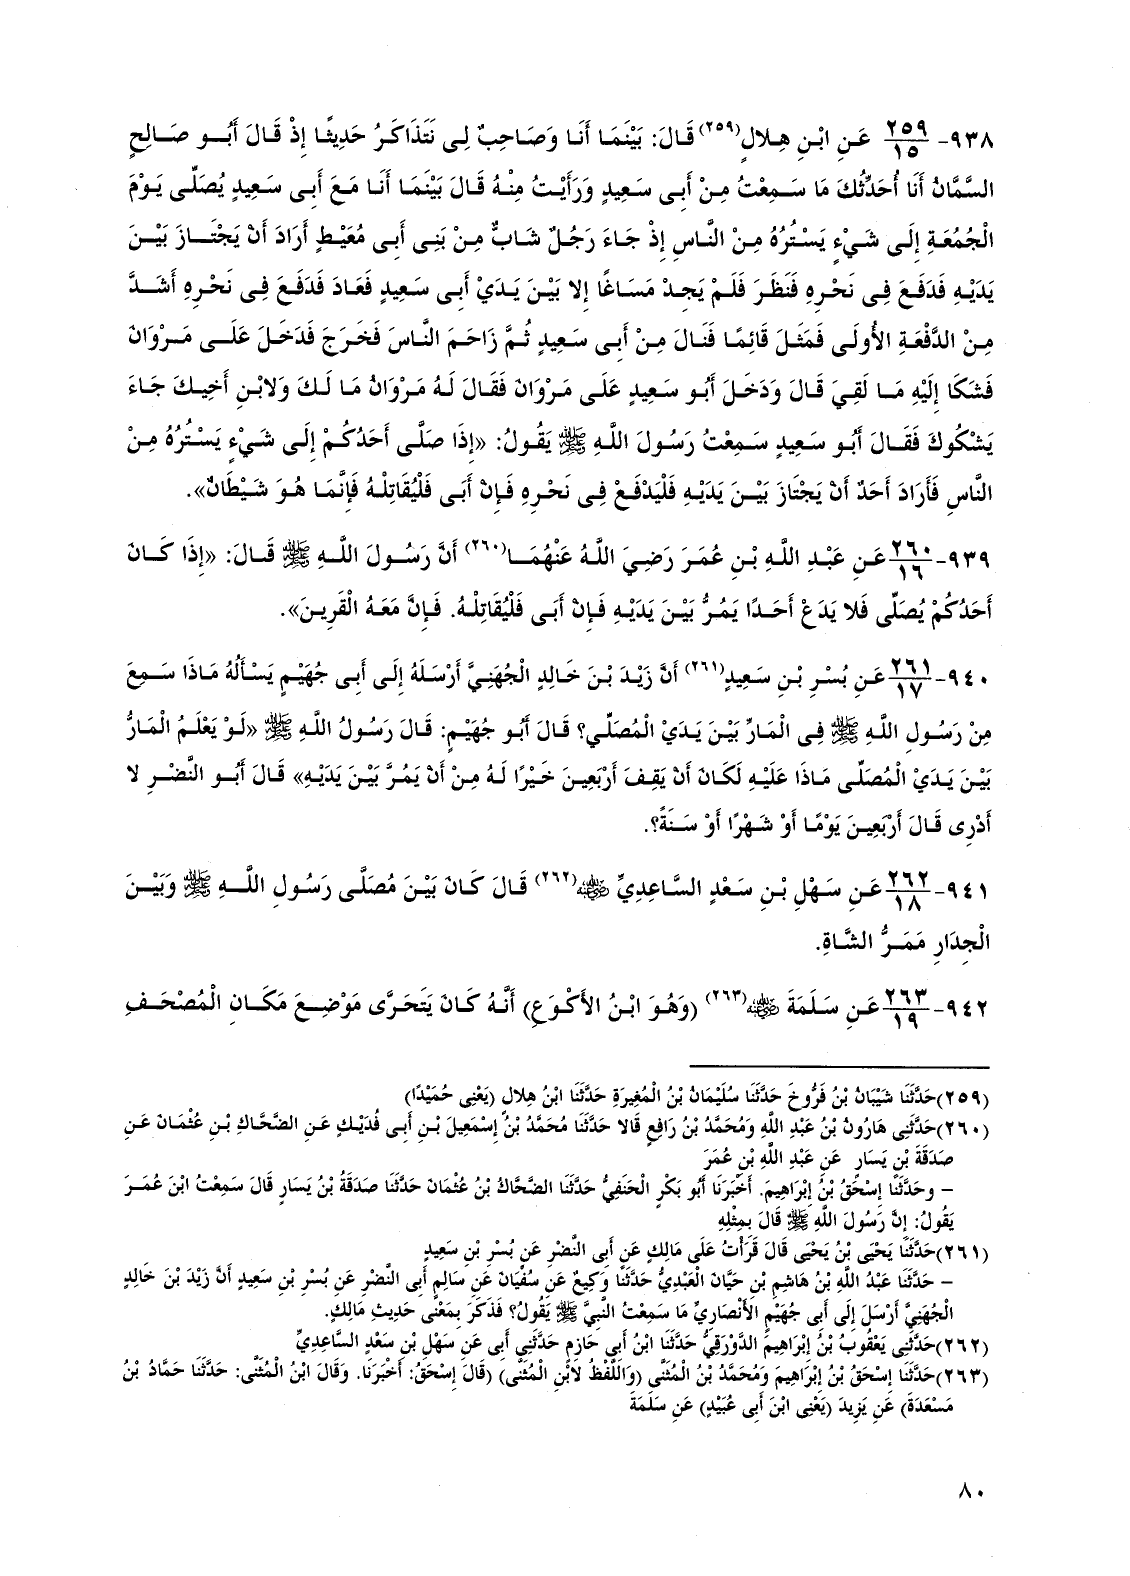 ٩٣٨- ٢٥٩/١٥ عَنِ ابْنِ هِلالٍ(٢٥٩) قَالَ: بَيْنَمَا أَنَا وَصَاحِبٌ لِى نَتَذَاكَرُ حَدِيثًا إِذْ قَالَ أَبُو صَالِحٍ
السَّمَّانُ أَنَا أُحَدِّثُكَ مَا سَمِعْتُ مِنْ أَبِى سَعِيدٍ وَرَأَيْتُ مِنْهُ قَالَ بَيْنَمَا أَنَا مَعَ أَبِى سَعِيدٍ يُصَلِّى يَوْمَ
الْجُمُعَةِ إِلَى شَيْءٍ يَسْتُرُهُ مِنْ النَّاسِ إِذْ جَاءَ رَجُلٌ شَابٌّ مِنْ بَنِى أَبِى مُعَيْطٍ أَرَادَ أَنْ يَجْتَازَ بَيْنَ
يَدَيْهِ فَدَفَعَ فِى نَحْرِهِ فَنَظَرَ فَلَمْ يَجِدْ مَسَاغًا إِلا بَيْنَ يَدَيْ أَبِى سَعِيدٍ فَعَادَ فَدَفَعَ فِى نَحْرِهِ أَشَدَّ
مِنْ الدَّفْعَةِ الأُولَى فَمَثَلَ قَائِمًا فَنَالَ مِنْ أَبِى سَعِيدٍ ثُمَّ زَاحَمَ النَّاسَ فَخَرَجَ فَدَخَلَ عَلَى مَرْوَانَ
فَشَكَا إِلَيْهِ مَا لَقِيَ قَالَ وَدَخَلَ أَبُو سَعِيدٍ عَلَى مَرْوَانَ فَقَالَ لَهُ مَرْوَانُ مَا لَكَ وَلابْنِ أَخِيكَ جَاءَ
يَشْكُوكَ فَقَالَ أَبُو سَعِيدٍ سَمِعْتُ رَسُولَ اللَّهِ ﷺ يَقُولُ: «إِذَا صَلَّى أَحَدُكُمْ إِلَى شَيْءٍ يَسْتُرُهُ مِنْ
النَّاسِ فَأَرَادَ أَحَدٌ أَنْ يَجْتَازَ بَيْنَ يَدَيْهِ فَلْيَدْفَعْ فِى نَحْرِهِ فَإِنْ أَبَى فَلْيُقَاتِلْهُ فَإِنَّمَا هُوَ شَيْطَانٌ».
٩٣٩- ٢٦٠/١٦ عَنِ عَبْدِ اللَّهِ بْنِ عُمَرَ رَضِيَ اللَّهُ عَنْهُمَا(٢٦٠) أَنَّ رَسُولَ اللَّهِ ﷺ قَالَ: «إِذَا كَانَ
أَحَدُكُمْ يُصَلِّى فَلا يَدَعْ أَحَدًا يَمُرُّ بَيْنَ يَدَيْهِ فَإِنْ أَبَى فَلْيُقَاتِلْهُ. فَإِنَّ مَعَهُ الْقَرِينَ».
٩٤٠- ٢٦١/١٧ عَنِ بُسْرِ بْنِ سَعِيدٍ(٢٦١) أَنَّ زَيْدَ بْنَ خَالِدٍ الْجُهَنِيَّ أَرْسَلَهُ إِلَى أَبِى جُهَيْمٍ يَسْأَلُهُ مَاذَا سَمِعَ
مِنْ رَسُولِ اللَّهِ ﷺ فِى الْمَارِّ بَيْنَ يَدَيْ الْمُصَلِّى؟ قَالَ أَبُو جُهَيْمٍ: قَالَ رَسُولُ اللَّهِ ﷺ «لَوْ يَعْلَمُ الْمَارُّ
بَيْنَ يَدَيْ الْمُصَلِّى مَاذَا عَلَيْهِ لَكَانَ أَنْ يَقِفَ أَرْبَعِينَ خَيْرًا لَهُ مِنْ أَنْ يَمُرَّ بَيْنَ يَدَيْهِ» قَالَ أَبُو النَّضْرِ لا
أَدْرِى قَالَ أَرْبَعِينَ يَوْمًا أَوْ شَهْرًا أَوْ سَنَةً؟.
٩٤١- ٢٦٢/١٨ عَنِ سَهْلِ بْنِ سَعْدٍ السَّاعِدِيِّ ﵁(٢٦٢) قَالَ كَانَ بَيْنَ مُصَلَّى رَسُولِ اللَّهِ ﷺ وَبَيْنَ
الْجِدَارِ مَمَرُّ الشَّاةِ.
٩٤٢- ٢٦٣/١٩ عَنِ سَلَمَةَ ﵁(٢٦٣) (وَهُوَ ابْنُ الأَكْوَعِ) أَنَّهُ كَانَ يَتَحَرَّى مَوْضِعَ مَكَانِ الْمُصْحَفِ
(٢٥٩)حَدَّثَنَا شَيْبَانُ بْنُ فَرُّوخَ حَدَّثَنَا سُلَيْمَانُ بْنُ الْمُغِيرَةِ حَدَّثَنَا ابْنُ هِلالٍ (يَعْنِى حُمَيْدًا)
(٢٦٠)حَدَّثَنِى هَارُونُ بْنُ عَبْدِ اللَّهِ وَمُحَمَّدُ بْنُ رَافِعٍ قَالا حَدَّثَنَا مُحَمَّدُ بْنُ إِسْمَعِيلَ بْنِ أَبِى فُدَيْكٍ عَنِ الضَّحَّاكِ بْنِ عُثْمَانَ عَنِ
صَدَقَةَ بْنِ يَسَارٍ عَنِ عَبْدِ اللَّهِ بْنِ عُمَرَ
– وحَدَّثَنَا إِسْحَقُ بْنُ إِبْرَاهِيمَ. أَخْبَرَنَا أَبُو بَكْرٍ الْحَنَفِيُّ حَدَّثَنَا الضَّحَّاكُ بْنُ عُثْمَانَ حَدَّثَنَا صَدَقَةُ بْنُ يَسَارٍ قَالَ سَمِعْتُ ابْنَ عُمَرَ
يَقُولُ: إِنَّ رَسُولَ اللَّهِ ﷺ قَالَ بِمِثْلِهِ
(٢٦١)حَدَّثَنَا يَحْيَى بْنُ يَحْيَى قَالَ قَرَأْتُ عَلَى مَالِكٍ عَنِ أَبِى النَّضْرِ عَنِ بُسْرِ بْنِ سَعِيدٍ
– حَدَّثَنَا عَبْدُ اللَّهِ بْنُ هَاشِمِ بْنِ حَيَّانَ الْعَبْدِيُّ حَدَّثَنَا وَكِيعٌ عَنِ سُفْيَانَ عَنِ سَالِمٍ أَبِى النَّضْرِ عَنِ بُسْرِ بْنِ سَعِيدٍ أَنَّ زَيْدَ بْنَ خَالِدٍ
الْجُهَنِيَّ أَرْسَلَ إِلَى أَبِى جُهَيْمٍ الأَنْصَارِيِّ مَا سَمِعْتُ النَّبِيَّ ﷺ يَقُولُ؟ فَذَكَرَ بِمَعْنَى حَدِيثِ مَالِكٍ.
(٢٦٢)حَدَّثَنِى يَعْقُوبُ بْنُ إِبْرَاهِيمَ الدَّوْرَقِيُّ حَدَّثَنَا ابْنُ أَبِى حَازِمٍ حَدَّثَنِى أَبِى عَنِ سَهْلِ بْنِ سَعْدٍ السَّاعِدِيِّ
(٢٦٣)حَدَّثَنَا إِسْحَقُ بْنُ إِبْرَاهِيمَ وَمُحَمَّدُ بْنُ الْمُثَنَّى (وَاللَّفْظُ لابْنِ الْمُثَنَّى) (قَالَ إِسْحَقُ: أَخْبَرَنَا. وَقَالَ ابْنُ الْمُثَنَّى: حَدَّثَنَا حَمَّادُ بْنُ
مَسْعَدَةَ) عَنِ يَزِيدَ (يَعْنِى ابْنَ أَبِى عُبَيْدٍ) عَنِ سَلَمَةَ
٨٠